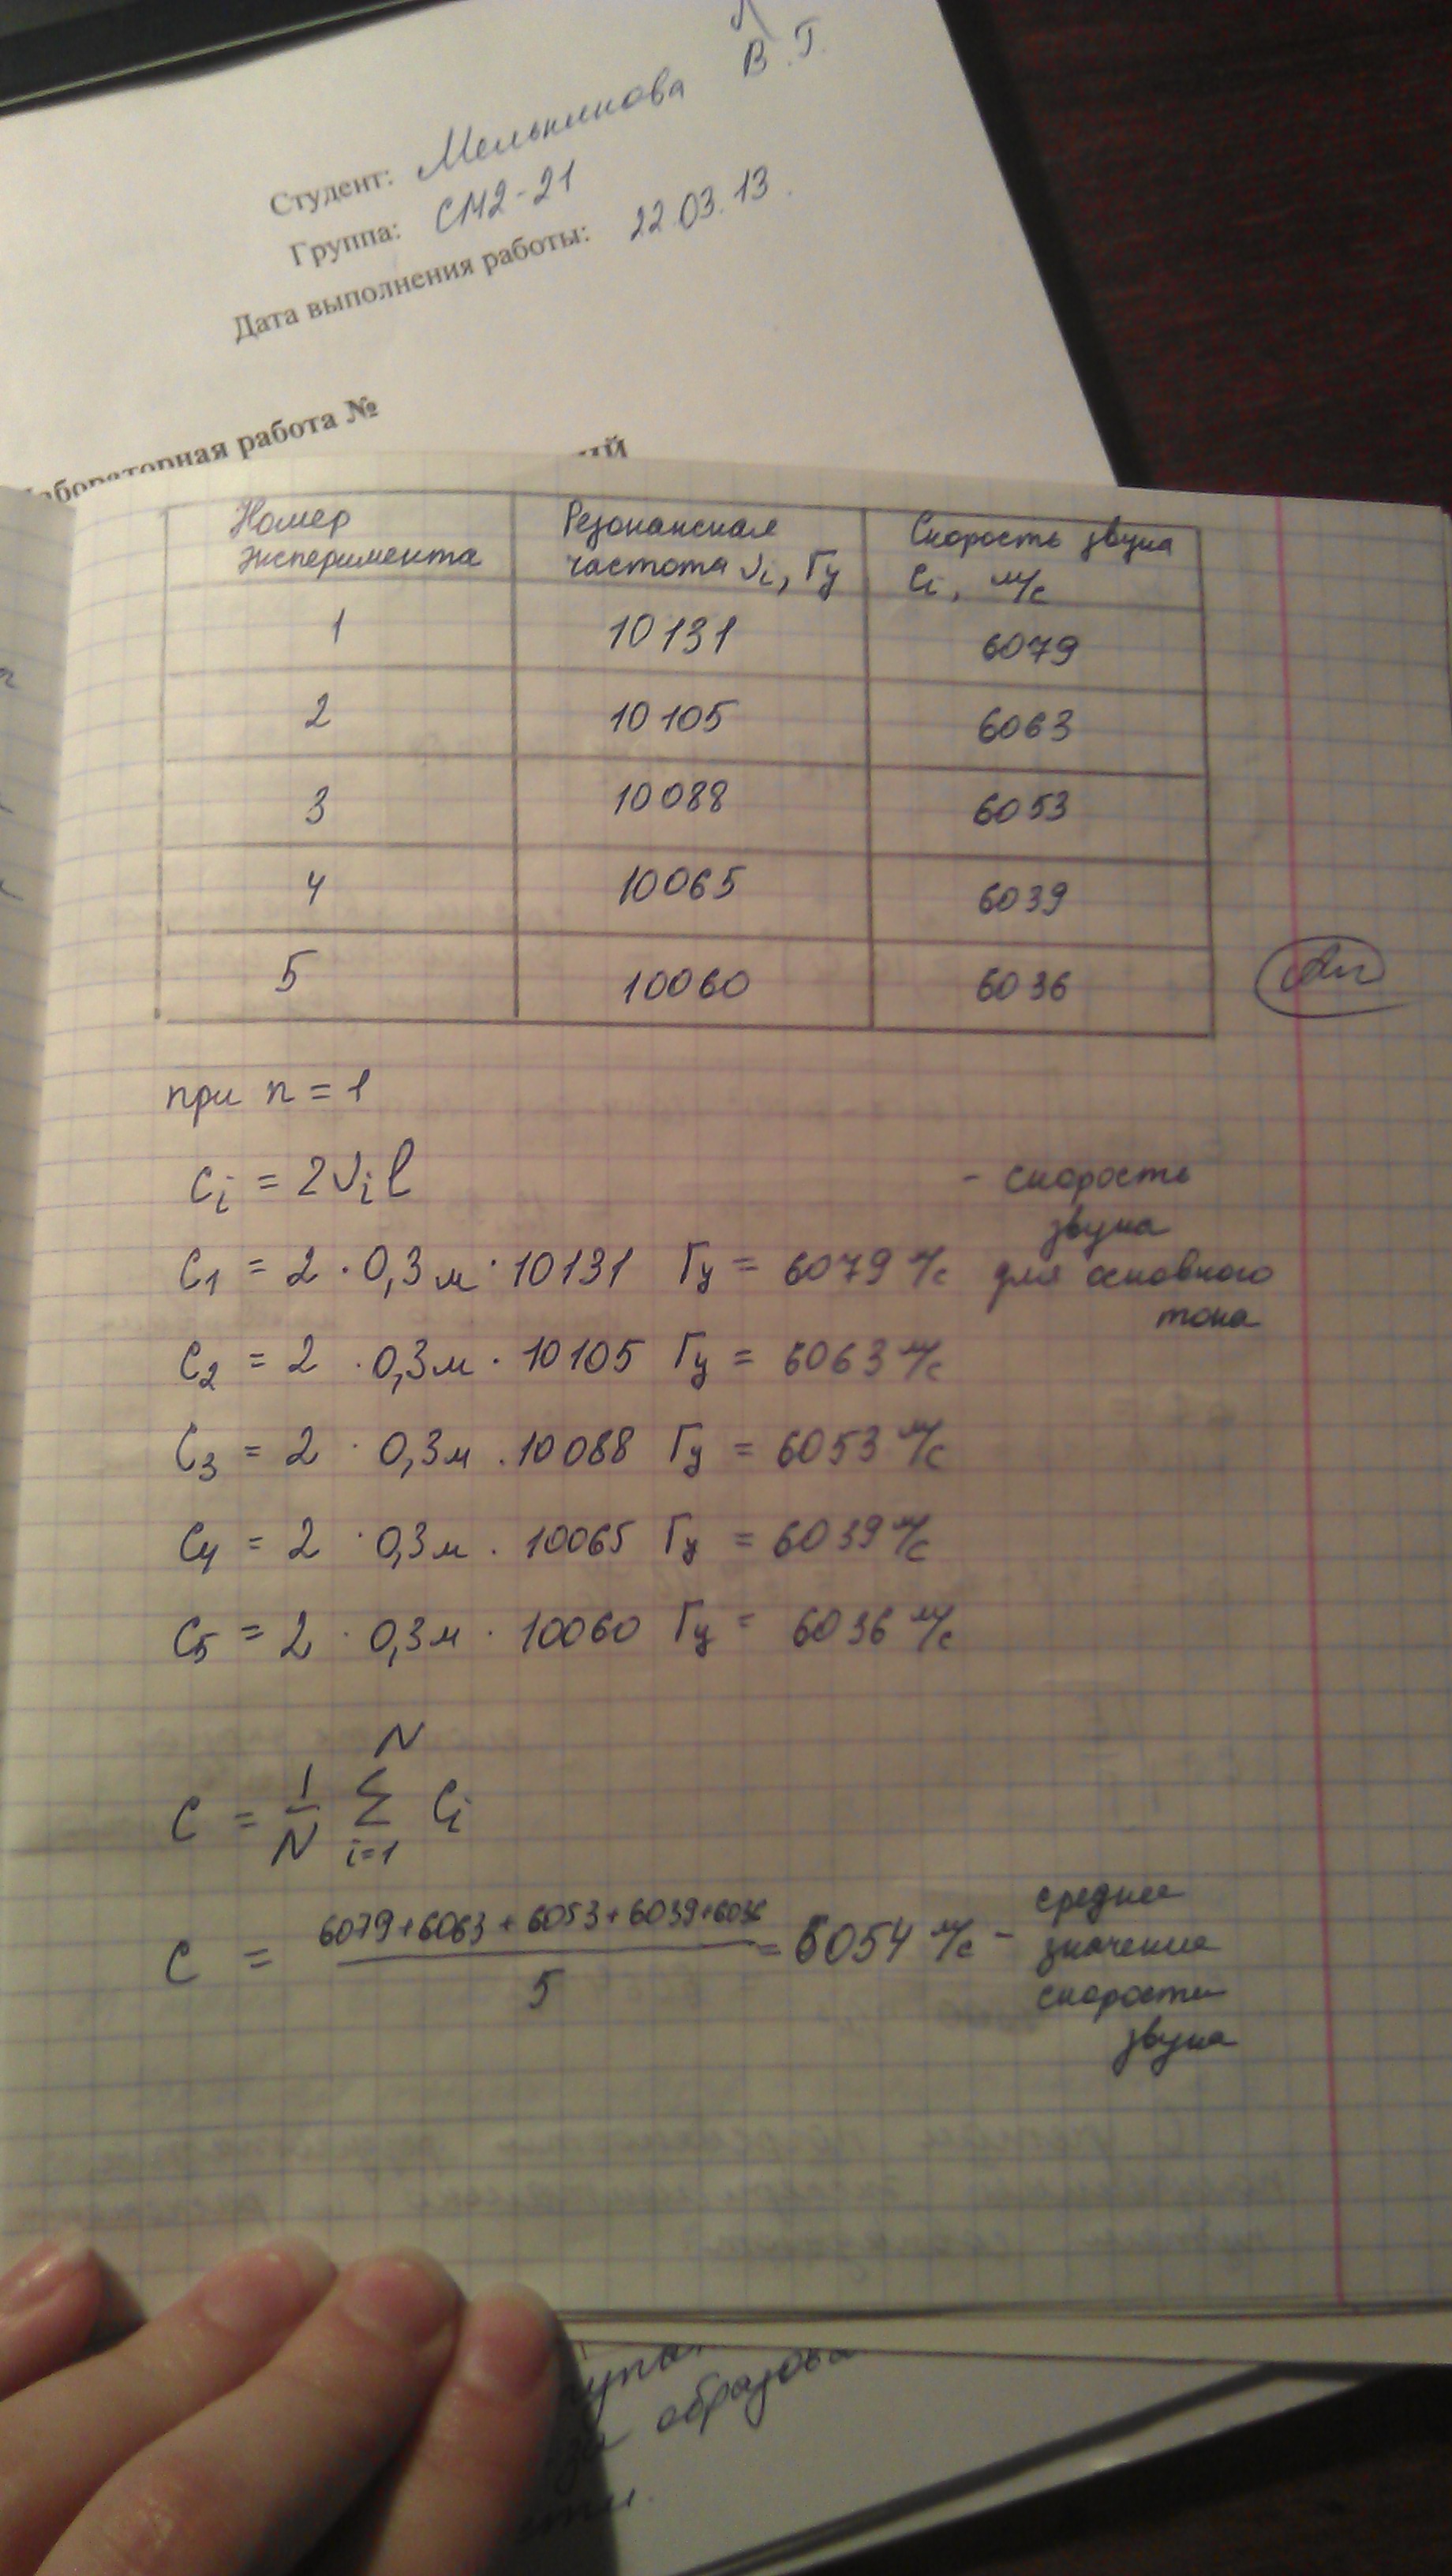 В.Т.
Студент: Мельникова
Группа: СМ2-21
Дата выполнения работы: 22.03.13.
Лабораторная работа №
ий
Номер эксперимента
Резонансная частота νi, Гц
Скорость звука Ci, м/с
1 10131 6079
2 10105 6063
3 10088 6053
4 10065 6039
5 10060 6036
при n = 1
ci = 2νil - скорость звука для основного тона
C1 = 2 · 0,3м · 10131 Гц = 6079 м/с
C2 = 2 · 0,3м · 10105 Гц = 6063 м/с
C3 = 2 · 0,3м · 10088 Гц = 6053 м/с
C4 = 2 · 0,3м · 10065 Гц = 6039 м/с
C5 = 2 · 0,3м · 10060 Гц = 6036 м/с
C = 1/N N Σ i=1 Ci
C = 6079+6063+6053+6039+6036 / 5 = 6054 м/с - среднее значение скорости звука
образова